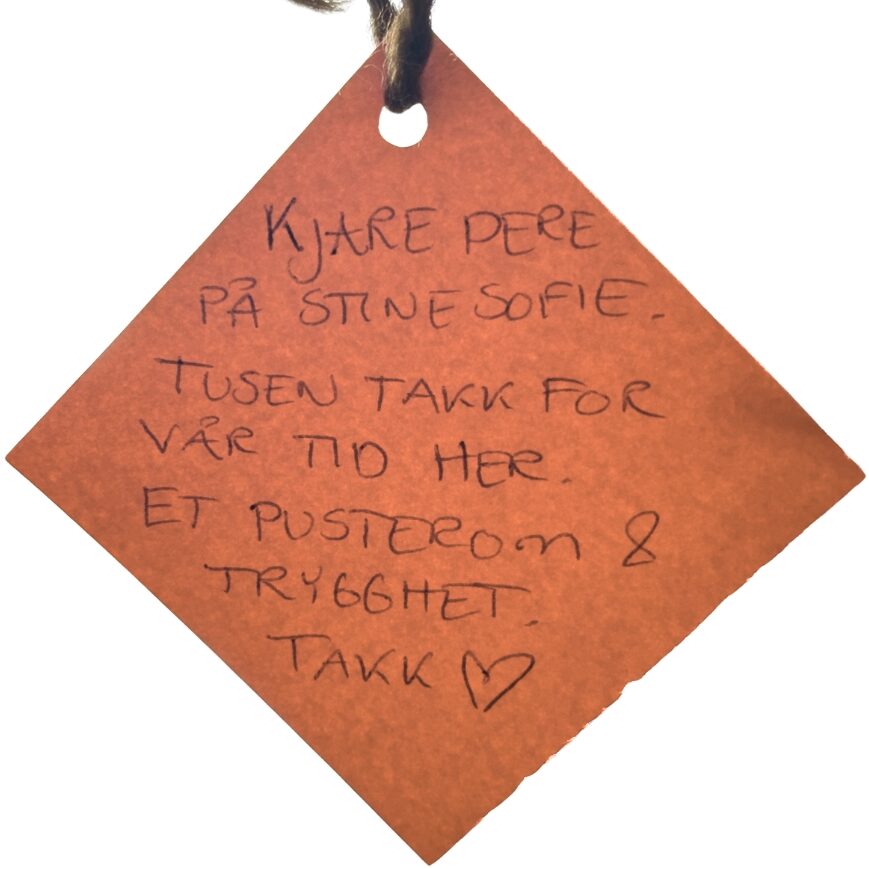 KJÆRE DERE
PÅ STINE SOFIE.
TUSEN TAKK FOR
VÅR TID HER.
ET PUSTEROM &
TRYGGHET.
TAKK ♡